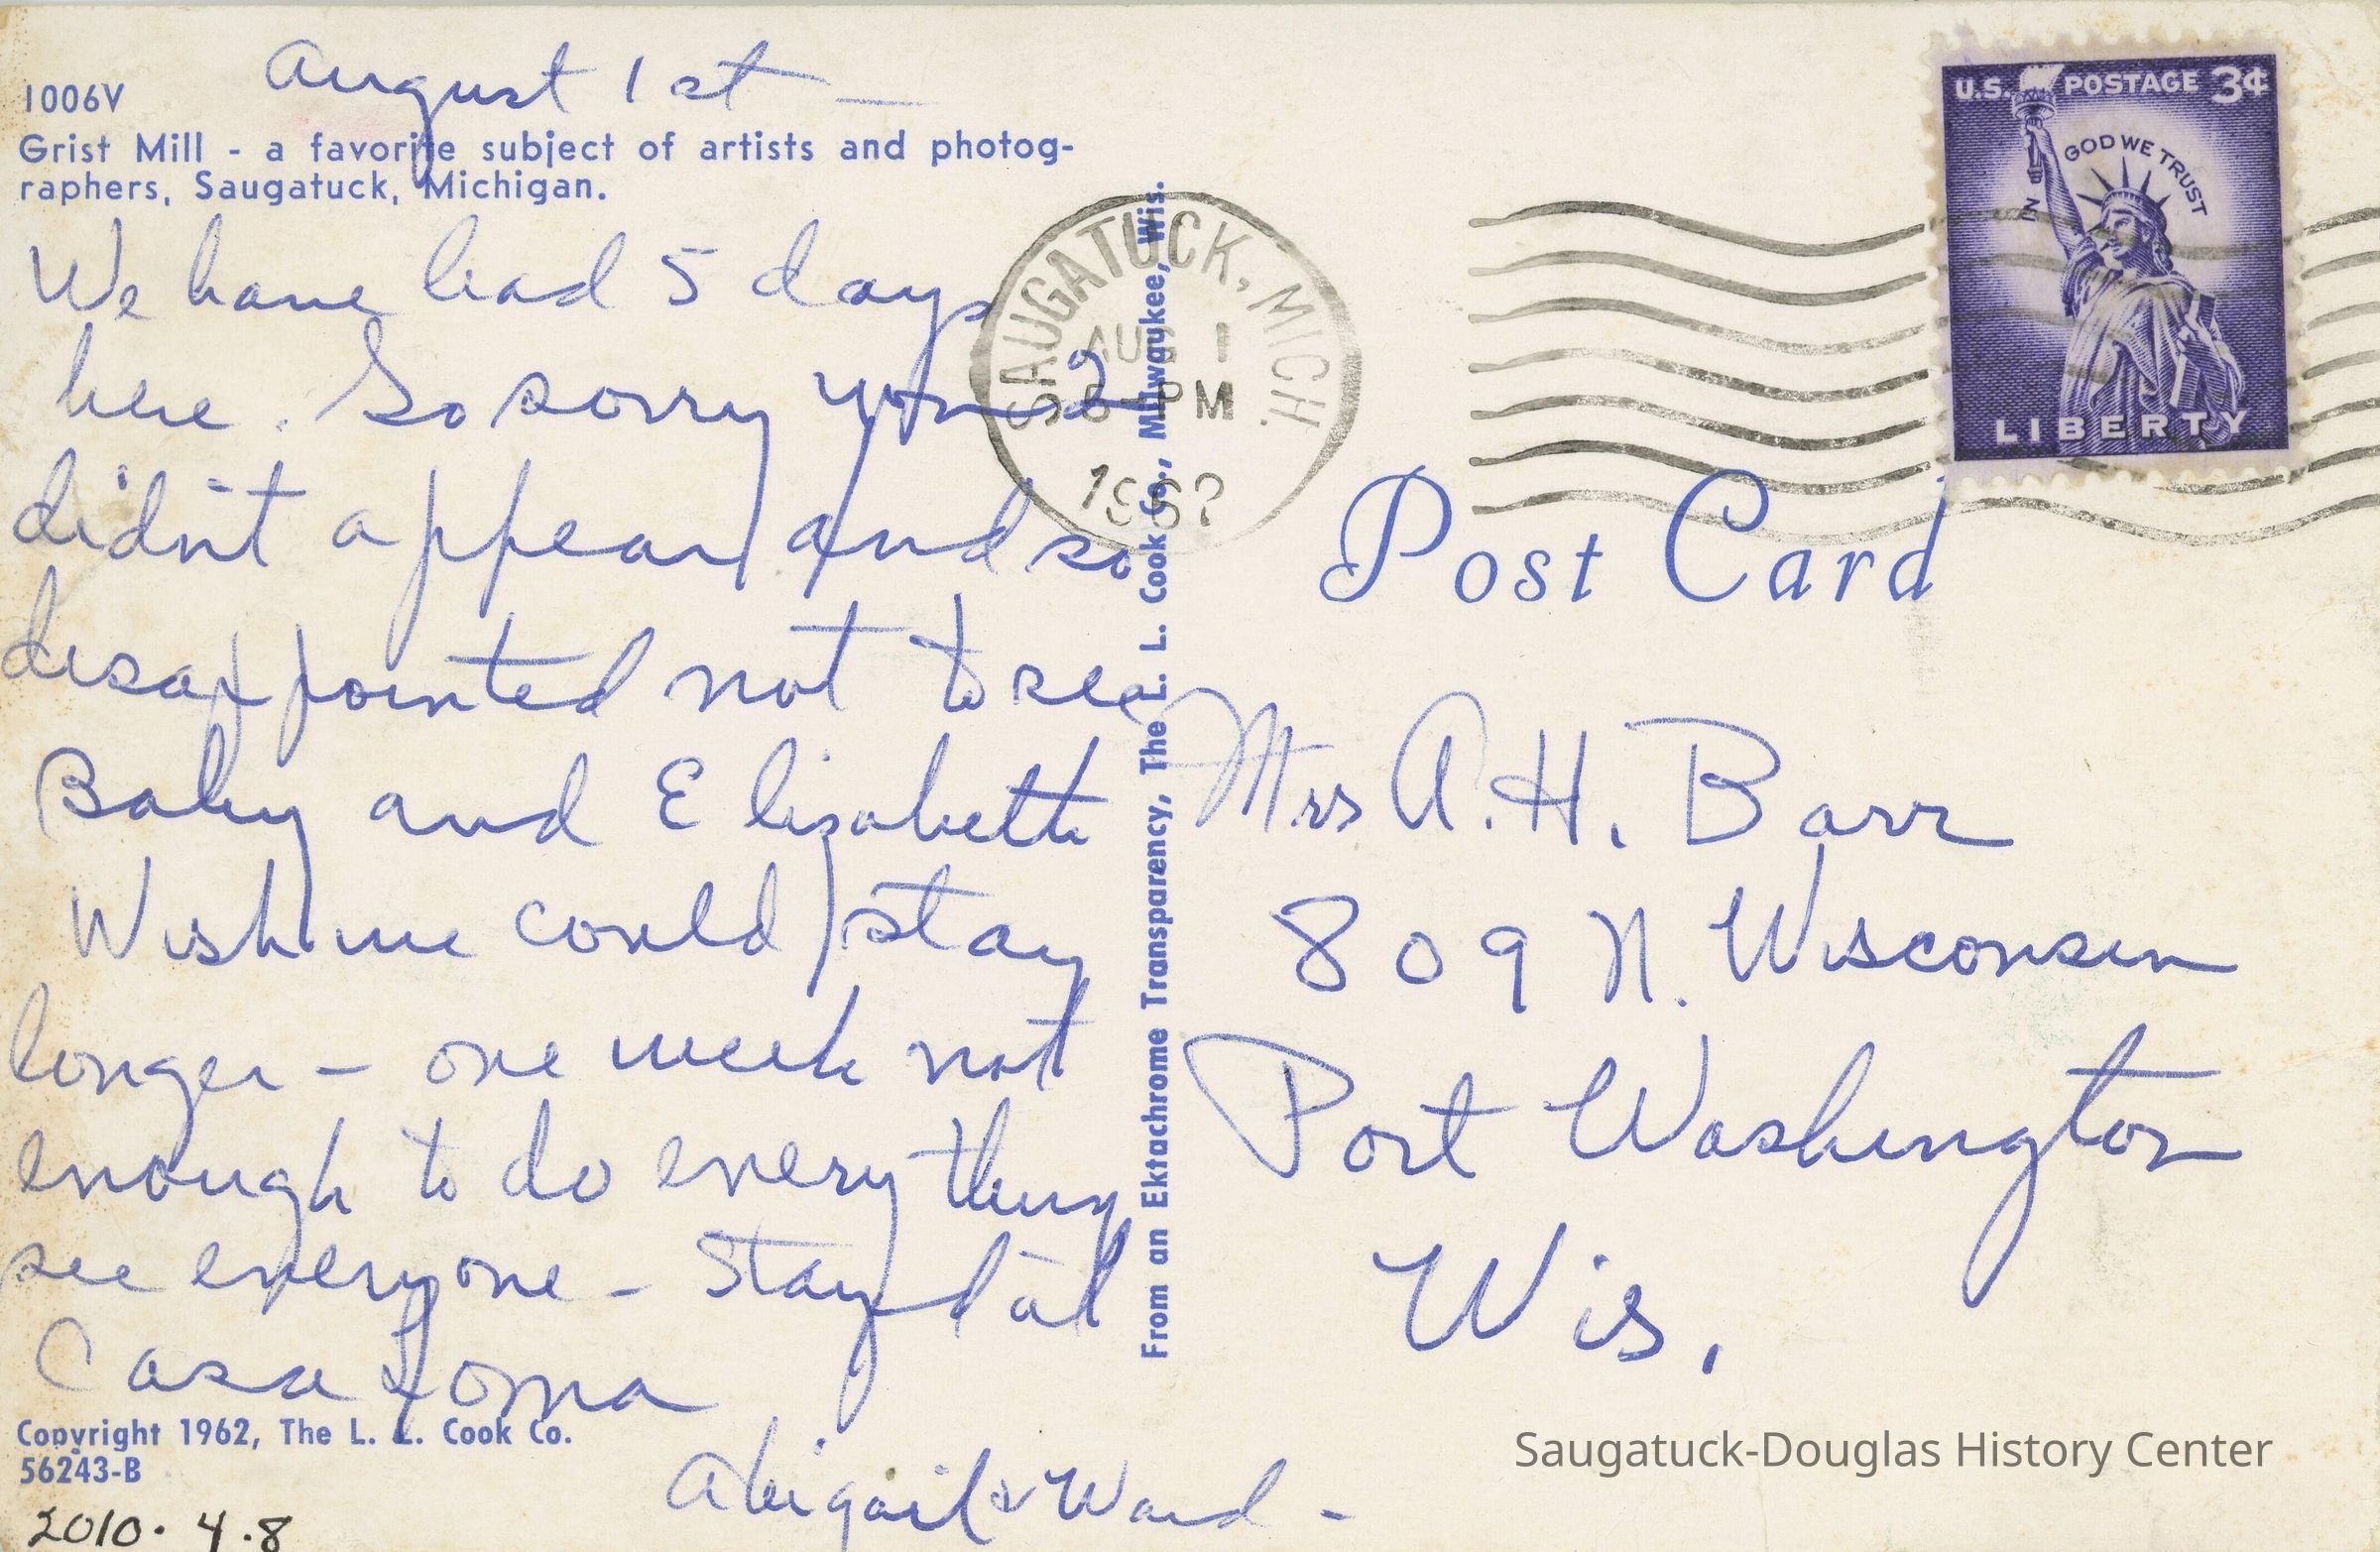 August 1st —
1006V
Grist Mill - a favorite subject of artists and photog-
raphers, Saugatuck, Michigan.
We have had 5 days
here. So sorry you 2
didn't appear and so
disappointed not to see
Baby and Elizabeth
Wish we could stay
longer - one week not
enough to do every thing
see everyone - Stayd at
Casa Loma
Abigail & Ward -
Copyright 1962, The L. L. Cook Co.
56243-B
2010. 4.8
From an Ektachrome Transparency, The L. L. Cook Co., Milwaukee, Wis.
SAUGATUCK, MICH.
AUG 1
PM
U.S. POSTAGE 3¢
IN GOD WE TRUST
LIBERTY
Post Card
Mrs A. H. Barr
809 N. Wisconsin
Port Washington
Wis.
Saugatuck-Douglas History Center